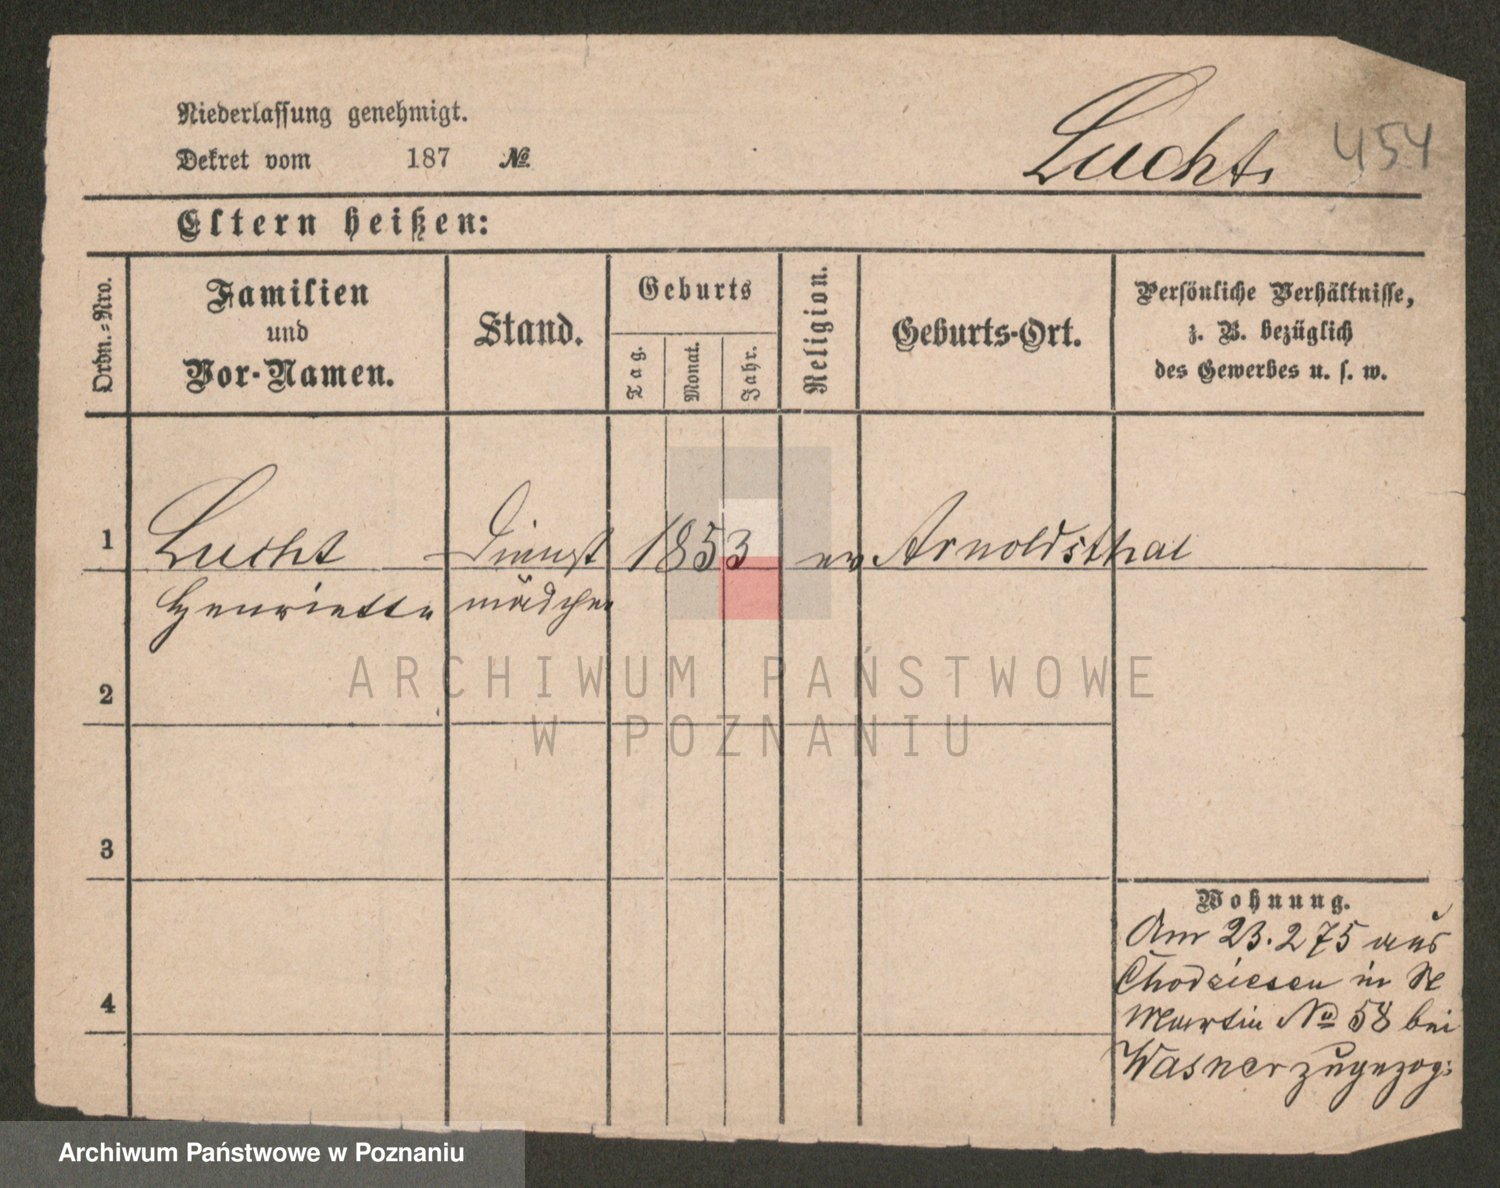 Niederlassung genehmigt.
Dekret vom 187 №
Lucht.
454
Eltern heißen:
Ordn.-Nro.
Familien
und
Vor-Namen.
Stand.
Geburts
Tag.
Monat.
Jahr.
Religion.
Geburts-Ort.
Persönliche Verhältnisse,
z. B. bezüglich
des Gewerbes u. s. w.
1 Lucht Dienst 1853 ev Arnoldsthal
Henriette mädchen
2
3
4
Wohnung.
Am 23.2 75 aus
Chodziesen in St
Martin No 58 bei
Wasner zugezog:
ARCHIWUM PAŃSTWOWE
W POZNANIU
Archiwum Państwowe w Poznaniu